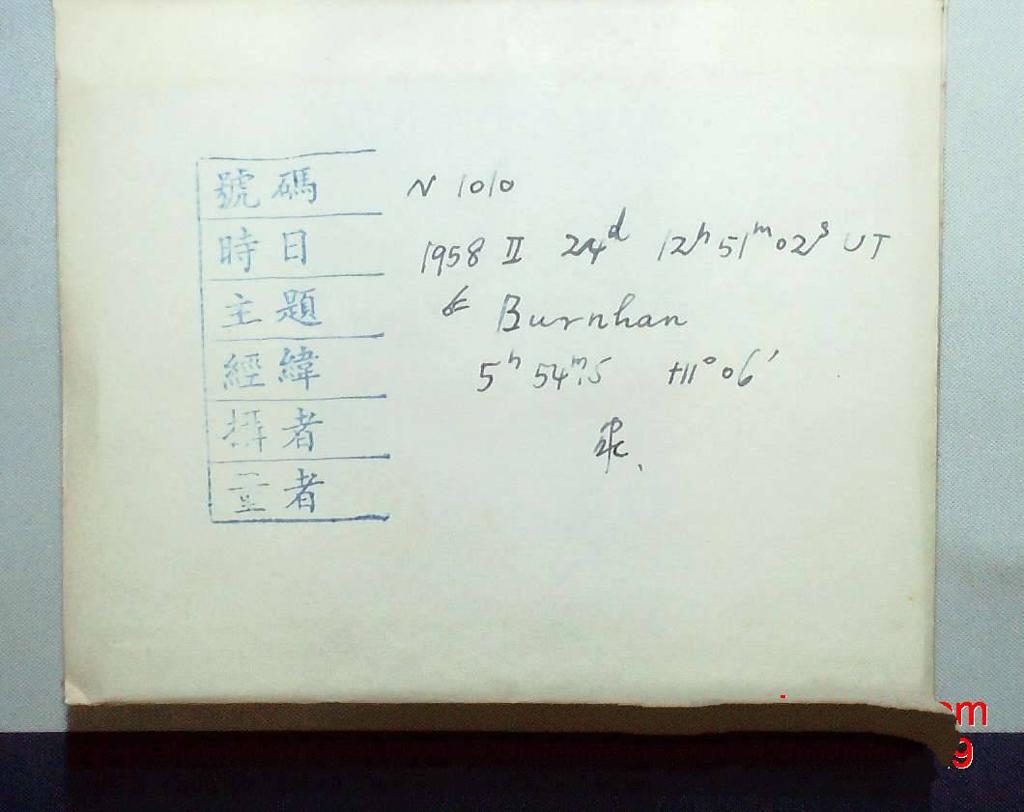 號碼 N 1010
時日 1958 II 24d 12h 51m 02s UT
主題 Burnhan
經緯 5h 54m.5 +11° 06'
攝者
量者